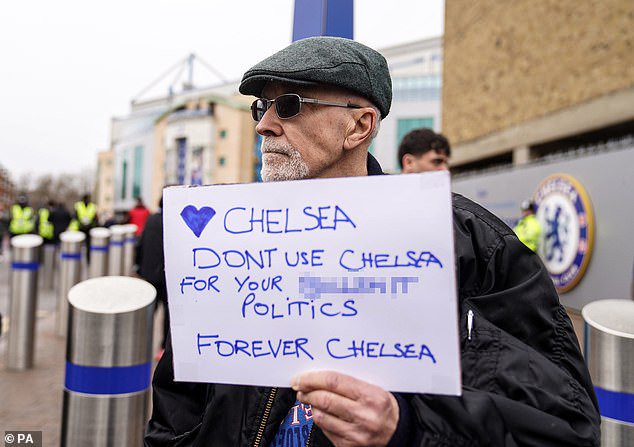 CHELSEA
DONT USE CHELSEA
FOR YOUR
POLITICS
FOREVER CHELSEA
© PA